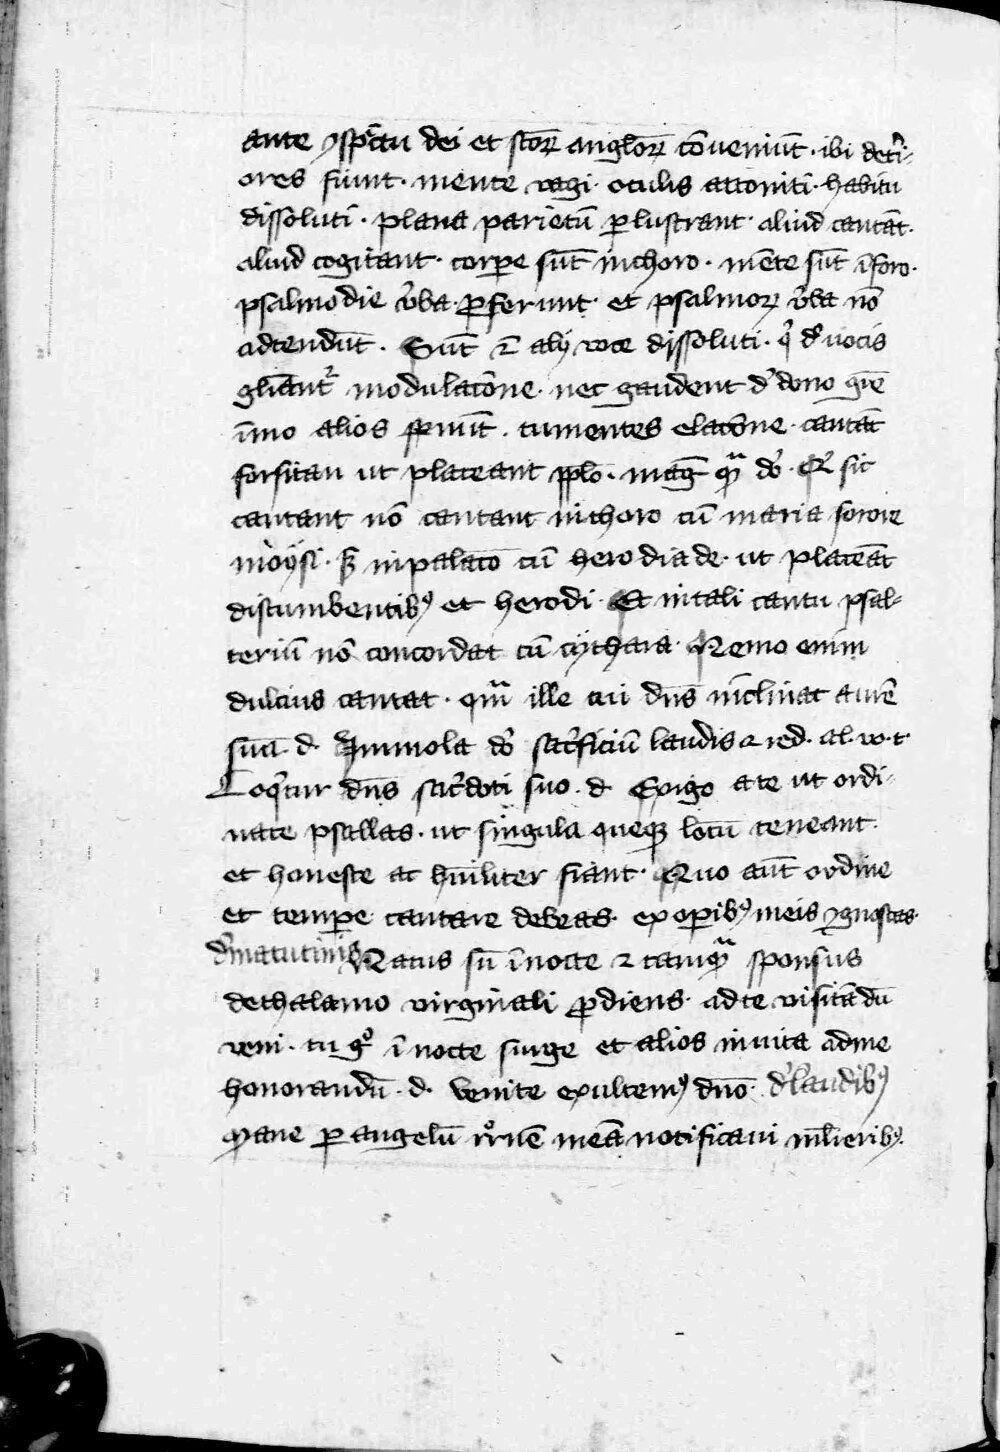 ante ꝯspc̄tu dei et sc̄oꝝ angloꝝ cōueniūt · ibi det'i-
ores fiunt · mente vagi · oculis attoniti · habitu
dissoluti · plana parietū ꝑlustrant · aliud cantāt ·
aliud cogitant · corpe sūt in choro · mēte sūt ī foro ·
psalmodie v̄ba ꝓferunt · et psalmoꝝ v̄ba nō
adtendūt · Sūt ⁊ alij voce dissoluti · q' d' uocis
gl̄iant' modulatōne · nec gaudent d' dono gr̄e
īmo alios spnūt · tumentes elatōne · cantāt
forsitan ut placeant pplo · maḡ qᵃ do' · Q' sic
cantant nō cantant in choro cū maria sorore
moÿsi · ſꝫ in palaco cū herodiade · ut placeāt
discumbentibꝰ et herodi · Et in tali cantu psal-
teriū nō concordat cū cythara · Nemo enim
dulcius cantat · qᵃm ille cui dn̄s īclinat aurē
suā · d · Immola do' sac'ficiū laudis ⁊ red · al · vo · t ·
Loq'tur dn̄s sac'doti suo · d · Exigo a te ut ordi-
nate psallas · ut singula queqꝫ locū teneant ·
et honeste ac hūiliter fiant · Quo aūt ordine
et tempe cantare debeas · ex opibꝰ meis ꝯgnoscas ·
d' matutinis Natus sū ī nocte ⁊ tamqᵃ sponsus
de thalamo virginali ꝓdiens · ad te visitādū
veni · tu gᵒ ī nocte surge et alios inuita ad me
honorandū · d · Venite exultemꝰ dn̄o · d' laudibꝰ
Mane ꝑ angelū rr'nē meā notificaui ml̄ieribꝰ ·